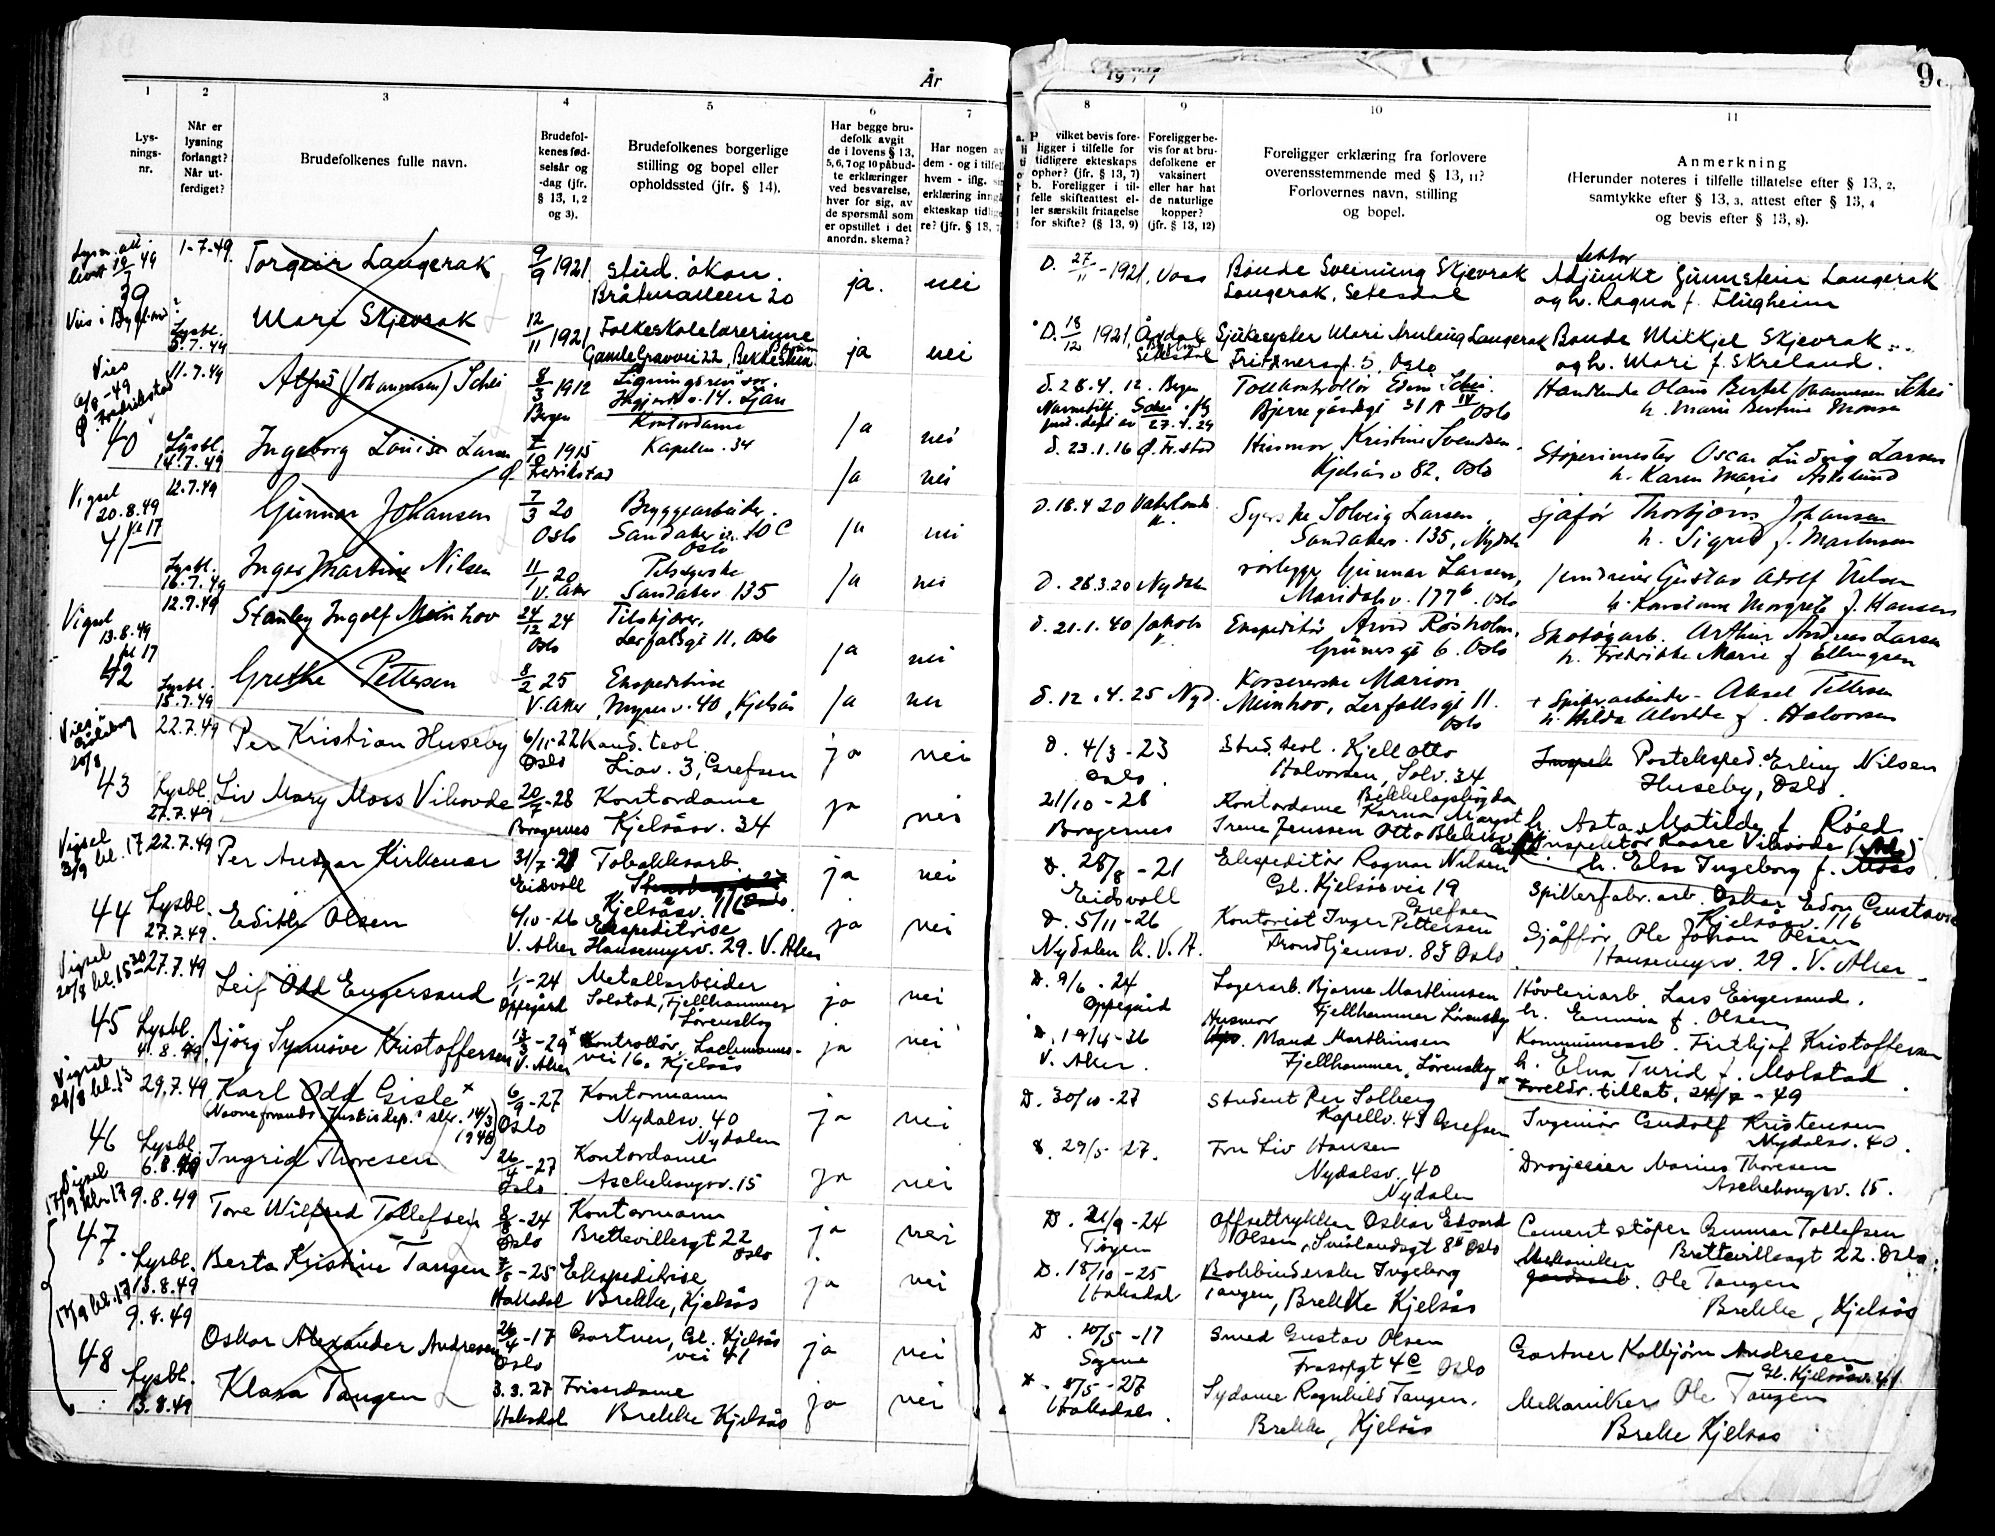 År
19
9
1
2
3
4
5
6
7
8
9
10
11
Lys-
nings-
nr.
Når er
lysning
forlangt?
Når ut-
ferdiget?
Brudefolkenes fulle navn.
Brudefol-
kenes fød-
selsår og
-dag (jfr.
§ 13, 1, 2
og 3).
Brudefolkenes borgerlige
stilling og bopel eller
opholdssted (jfr. § 14).
Har begge bru-
defolk avgit
de i lovens § 13,
5, 6, 7 og 10 påbud-
te erklæringer
ved besvarelse,
hver for sig, av
de spørsmål som
er opstillet i det
anordn. skema?
Har nogen av
dem - og i tilfell
hvem - iflg. sin
erklæring inngå
ekteskap tidlige
re? (jfr. § 13,
vilket bevis fore-
ligger i tilfelle for
tidligere ekteskaps
ophør? (jfr. § 13, 7)
b. Foreligger i til-
felle skifteattest el-
ler særskilt fritagelse
for skifte? (§ 13, 9)
Foreligger be-
vis for at bru-
defolkene er
vaksinert
eller har hat
de naturlige
kopper?
(jfr. § 13, 12)
Foreligger erklæring fra forlovere
overensstemmende med § 13, 11?
Forlovernes navn, stilling
og bopel.
Anmerkning
(Herunder noteres i tilfelle tillatelse efter § 13, 2,
samtykke efter § 13, 3, attest efter § 13, 4
og bevis efter § 13, 8).
39
1-7-49.
Torgeir Langerak
9/9 1921
stud. økon.
Bråtenalleen 20
ja.
nei
D. 27/11 - 1921, Voss
Bonde Sveinung Skjevrak
Langerak, Setesdal
Lektor
Adjunkt Gunnstein Langerak
og h. Ragna f. Flugheim
Lysbl.
5.7.49
Mari Skjevrak
12/11 1921
Folkeskolelærerinne
Gamle Gravvei 22, Bekkestua
ja
nei
D. 18/12 1921,
Setesdal
Langerak
5, Oslo
Bonde Mitkjel Skjevrak
og h. Mari f. Skreland.
Vies
6/8 - 49
Ø. Fredrikstad
40
11.7.49
Alfred (Johannessen) Schei
8/3 1912
Bergen
14. Ljan
ja
nei
d. 28.4.12. Bergen
27.4.29
Tollkontrollør Edvin Schei
Oslo
Handlende Olaus Bertel Johannessen Schei
h. Marie Bertine Monsen
Lysbl.
14.7.49
Ingeborg Louise Larsen
7/10 1915
Ø. Fredrikstad
Kontordame
Kapellv. 34
ja
nei
d. 23.1.16 Ø. Fr.stad
Husmor Kristine Svendsen
Kjelsåsv 82, Oslo
Støperimester Oscar Ludvig Larsen
h. Karen Marie Asklund
Vigsel
20.8.49
kl 17
41
12.7.49
Gunnar Johansen
7/3 20
Oslo
Bryggearbeider.
Sandakerv. 10 C
Oslo
ja
nei
D. 18.4.20
Syerske Solveig Larsen
Sandakerv. 135, Nydaln
Sjåfør Thorbjørn Johansen
h. Sigrid f. Martinsen
Lysbl.
16.7.49
Inger Martine Nilsen
11/1 20
V. Aker
Sandakerv 135
ja
nei
D. 28.3.20 Nydaln
rørlegger Gunnar Larsen,
Maridalsv. 177b. Oslo
Gustav Adolf Nilsen
h. Konstanse Margrete f. Hansen
Vigsel
13.8.49
kl 17
42
12.7.49
Stanley Ingolf Meinhov
24/12 24
Oslo
Tilskjærer.
Lerfalsgt 11, Oslo
ja
nei
d. 21.1.40 Jakob
k.
Ekspeditør Arvid Røsholm,
Grüners gt 6. Oslo
Skotøyarb. Arthur Andreas Larsen
h. Fredrikke Marie f Ellingsen
Lysbl.
15.7.49
Grethe Pettersen
8/2 25
V. Aker
Ekspeditrise
Myrerv. 40, Kjelsås
ja
nei
d. 12.4.25 Nyd.
Korsetterske Marion
Meinhov, Lerfallsgt 11.
Oslo
+ Spikerarbeider - Aksel Pettersen
h. Hilda Alvilde f. Halvorsen
Vies
Göteborg
20/8
43
22.7.49
Per Kristian Huseby
6/11-22
Oslo
Kand. teol.
Liav. 3, Grefsen
ja
nei
D. 4/3 - 23
Oslo.
Stud. teol. Kjell Otto
Halvorsen, Solv. 34
Bekkelagshøgda
Postekspedt Erling Nilsen
Huseby, Oslo.
h. Asta Matilde f. Røed
Lysbl.
27.7.49
Liv Mary Moss Vihovde
20/7 - 28
Bragernes
Kontordame
Kjelsåsv. 34
ja
nei
21/10 - 28
Bragernes
Kontordame Karna Margot
Irene Jenssen Otto Blehrsv
Inspektør Kaare Vihovde
h. Elsa Ingeborg f. Moss
Vigsel
3/9 kl. 17
44
22.7.49
Per Ansgar Kirkemar
31/7 - 21
Eidsvoll
Tobakksarb.
Kjelsåsv. 116
ja
nei
D. 28/8 - 21
Eidsvoll
Ekspeditør Ragnar Nilsen
Gl. Kjelsåsvei 19
Grefsen
Spikerfabr.arb. Oskar Edon Gustavsen
Kjelsåsv. 116
Lysbl.
27.7.49.
Edith Olsen
6/10 - 26
V. Aker
Ekspeditrise
Hansemyrv. 29. V. Aker
ja
nei
D. 5/11 - 26
Nydalen k. V. A.
Kontorist Inger Pettersen
Trondhjemsv. 83 Oslo
Sjåffør Ole Johan Olsen
Hansemyrv. 29. V. Aker
Vigsel
20/8 kl. 15 30
45
27.7.49
Leif Odd Engersand
1/1 - 24
Oppegård
Metallarbeider
Solstad, Fjellhammer
Lørenskog
ja
nei
D. 9/6 - 24
Oppegård
Lagerarb. Bjarne Marthinsen
Fjellhammer Lørenskog
Høvleriarb. Lars Engersand.
h. Emma f. Olsen
Lysbl.
4.8.49
Bjørg Synnøve Kristoffersen
13/3 - 29 x
V. Aker
Kontrollør, Lachmanns-
vei 16, Kjelsås
ja
nei
D. 19/4 - 26
V. Aker.
Husmor
Maud Marthinsen
Fjellhammer, Lørenskog
Kommunearb. Fritjof Kristoffersen
h. Elna Turid f. Molstad
x Foreldr. tillat. 24/7 - 49
Vigsel
20/8 kl. 13
46
29.7.49
Karl Odd Gisle x
(Navneforandr. Justisdep.s skr. 14/3
1946)
6/9 - 27
Oslo
Kontormann
Nydalsv. 40
Nydalen
ja
nei
D. 30/10 - 27
Student Per Solberg
Kapellv. 43 Grefsen
Ingeniør Gudolf Kristensen
Nydalsv. 40.
Lysbl.
6.8.49
Ingrid Thoresen
26/4 - 27
Oslo
Kontordame
Aschehougsv. 15
ja
nei
D. 29/5 - 27.
Fru Liv Hansen
Nydalsv. 40
Nydalen
Drosjeeier Marius Thoresen
Aschehougsv. 15.
Vigsel
17/9 kl. 17
47
9.8.49
Tore Wilfred Tollefsen
8/8 - 24
Oslo
Kontormann
Brettevillesgt 22
Oslo
ja
nei
D. 21/9 - 24
Tøyen
Offsettrykker Oskar Edvard
Olsen, Smålandsgt 8b Oslo
Cementstøper Gunnar Tollefsen
Brettevillesgt 22. Oslo
Lysbl.
13.8.49
Berta Kristine Tangen
- 25
Hakadal
Ekspeditrise
Brekke, Kjelsås
ja
nei
D. 18/10 - 25
Hakadal
Bokbinderske Ingeborg
Tangen, Brekke Kjelsås
Mekaniker
Ole Tangen
Brekke, Kjelsås
17/9 kl. 17
48
9.8.49
Oskar Alexander Andresen
26/4 - 17
Oslo
Gartner, Gl. Kjelsås
vei 41
ja
nei
D. 10/5 - 17
Sagene
Smed Gustav Olsen
Oslo
Gartner Kolbjørn Andresen
Gl. Kjelsåsv. 41.
Lysbl.
13.8.49
Klara Tangen
3.3.27
Hakadal
Friserdame
Brekke Kjelsås
ja
nei
8/5 - 27
Hakadal.
Sydame Ragnhild Tangen.
Brekke, Kjelsås
Mekaniker Ole Tangen
Brekke Kjelsås